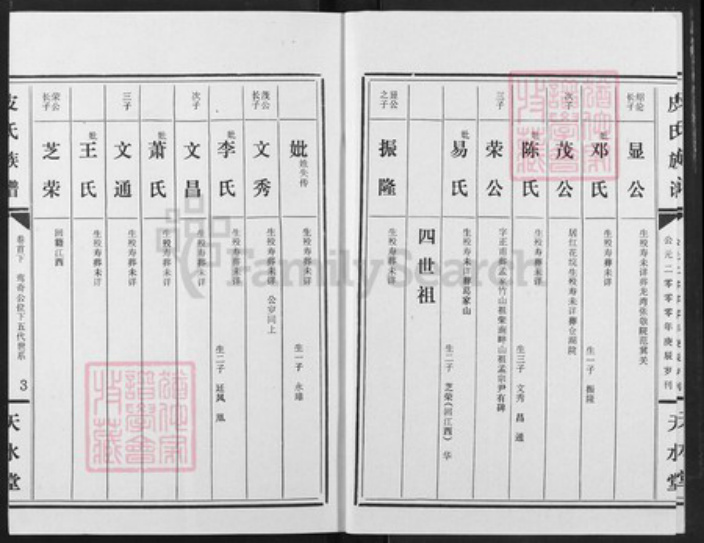 皮氏族谱
公元二零零零年庚辰岁刊
天水堂
绍公长子
显公
生殁寿葬未详
妣
邓氏
生殁寿葬未详
生一子 振隆
次子
茂公
妣
陈氏
生殁寿葬未详
生三子 文秀 昌 通
三子
荣公
妣
易氏
生殁寿葬未详葬葛家山
生二子 芝荣(回江西) 华
四世祖
显公之子
振隆
生殁寿葬未详
妣
姓失传
生殁寿葬未详
生一子 永臻
茂公长子
文秀
生殁寿葬未详 公穿同上
妣
李氏
生殁寿葬未详
生二子 廷凤 凰
次子
文昌
生殁寿葬未详
妣
萧氏
生殁寿葬未详
三子
文通
生殁寿葬未详
妣
王氏
生殁寿葬未详
荣公长子
芝荣
回籍江西
皮氏族谱
卷首下
公位下五代世系
3
天水堂
FamilySearch